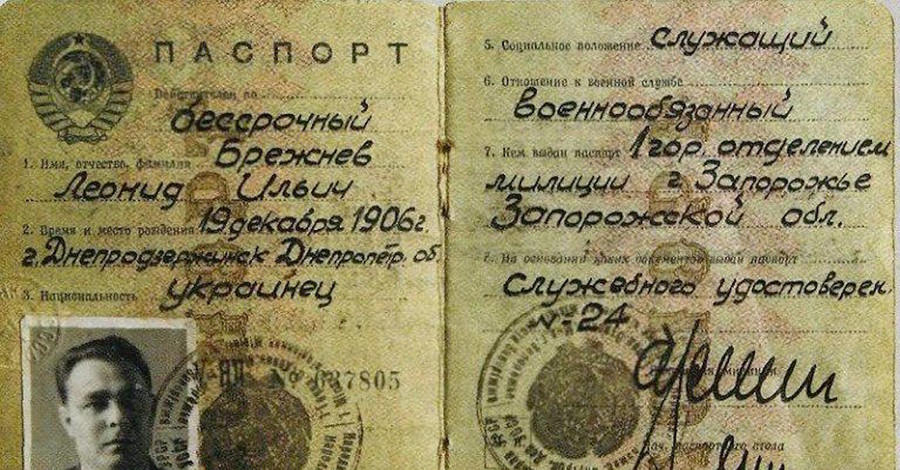 ПАСПОРТ
Действителен по
бессрочный
1. Имя, отчество, фамилия Брежнев
Леонид Ильич
2. Время и место рождения 19 декабря 1906 г.
г. Днепродзержинск Днепропетр. об.
3. Национальность украинец
V-ЯП № 637805
5. Социальное положение служащий
6. Отношение к военной службе
военнообязанный
7. Кем выдан паспорт 1 гор. отделением
милиции г. Запорожье
Запорожской обл.
8. На основании каких документов выдан паспорт
служебного удостоверен.
V-24
милиции
Нач. паспортного стола